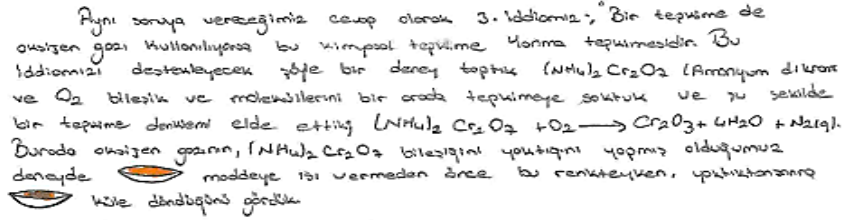 Aynı soruya vereceğimiz cevap olarak 3. iddiamız; "Bir tepkime de
oksijen gazı kullanılıyorsa bu kimyasal tepkime yanma tepkimesidir. Bu
iddiamızı destekleyecek şöyle bir deney yaptık (NH4)2 Cr2O7 (Amonyum dikromat
ve O2 bileşik ve moleküllerini bir arada tepkimeye soktuk ve şu şekilde
bir tepkime denklemi elde ettik; (NH4)2 Cr2O7 +O2 → Cr2O3+ 4H2O + N2(g).
Burada oksijen gazının, (NH4)2 Cr2O7 bileşiğini yaktığını yapmış olduğumuz
deneyde maddeye ısı vermeden önce bu renkteyken, yaktıktan sonra
küle döndüğünü gördük.